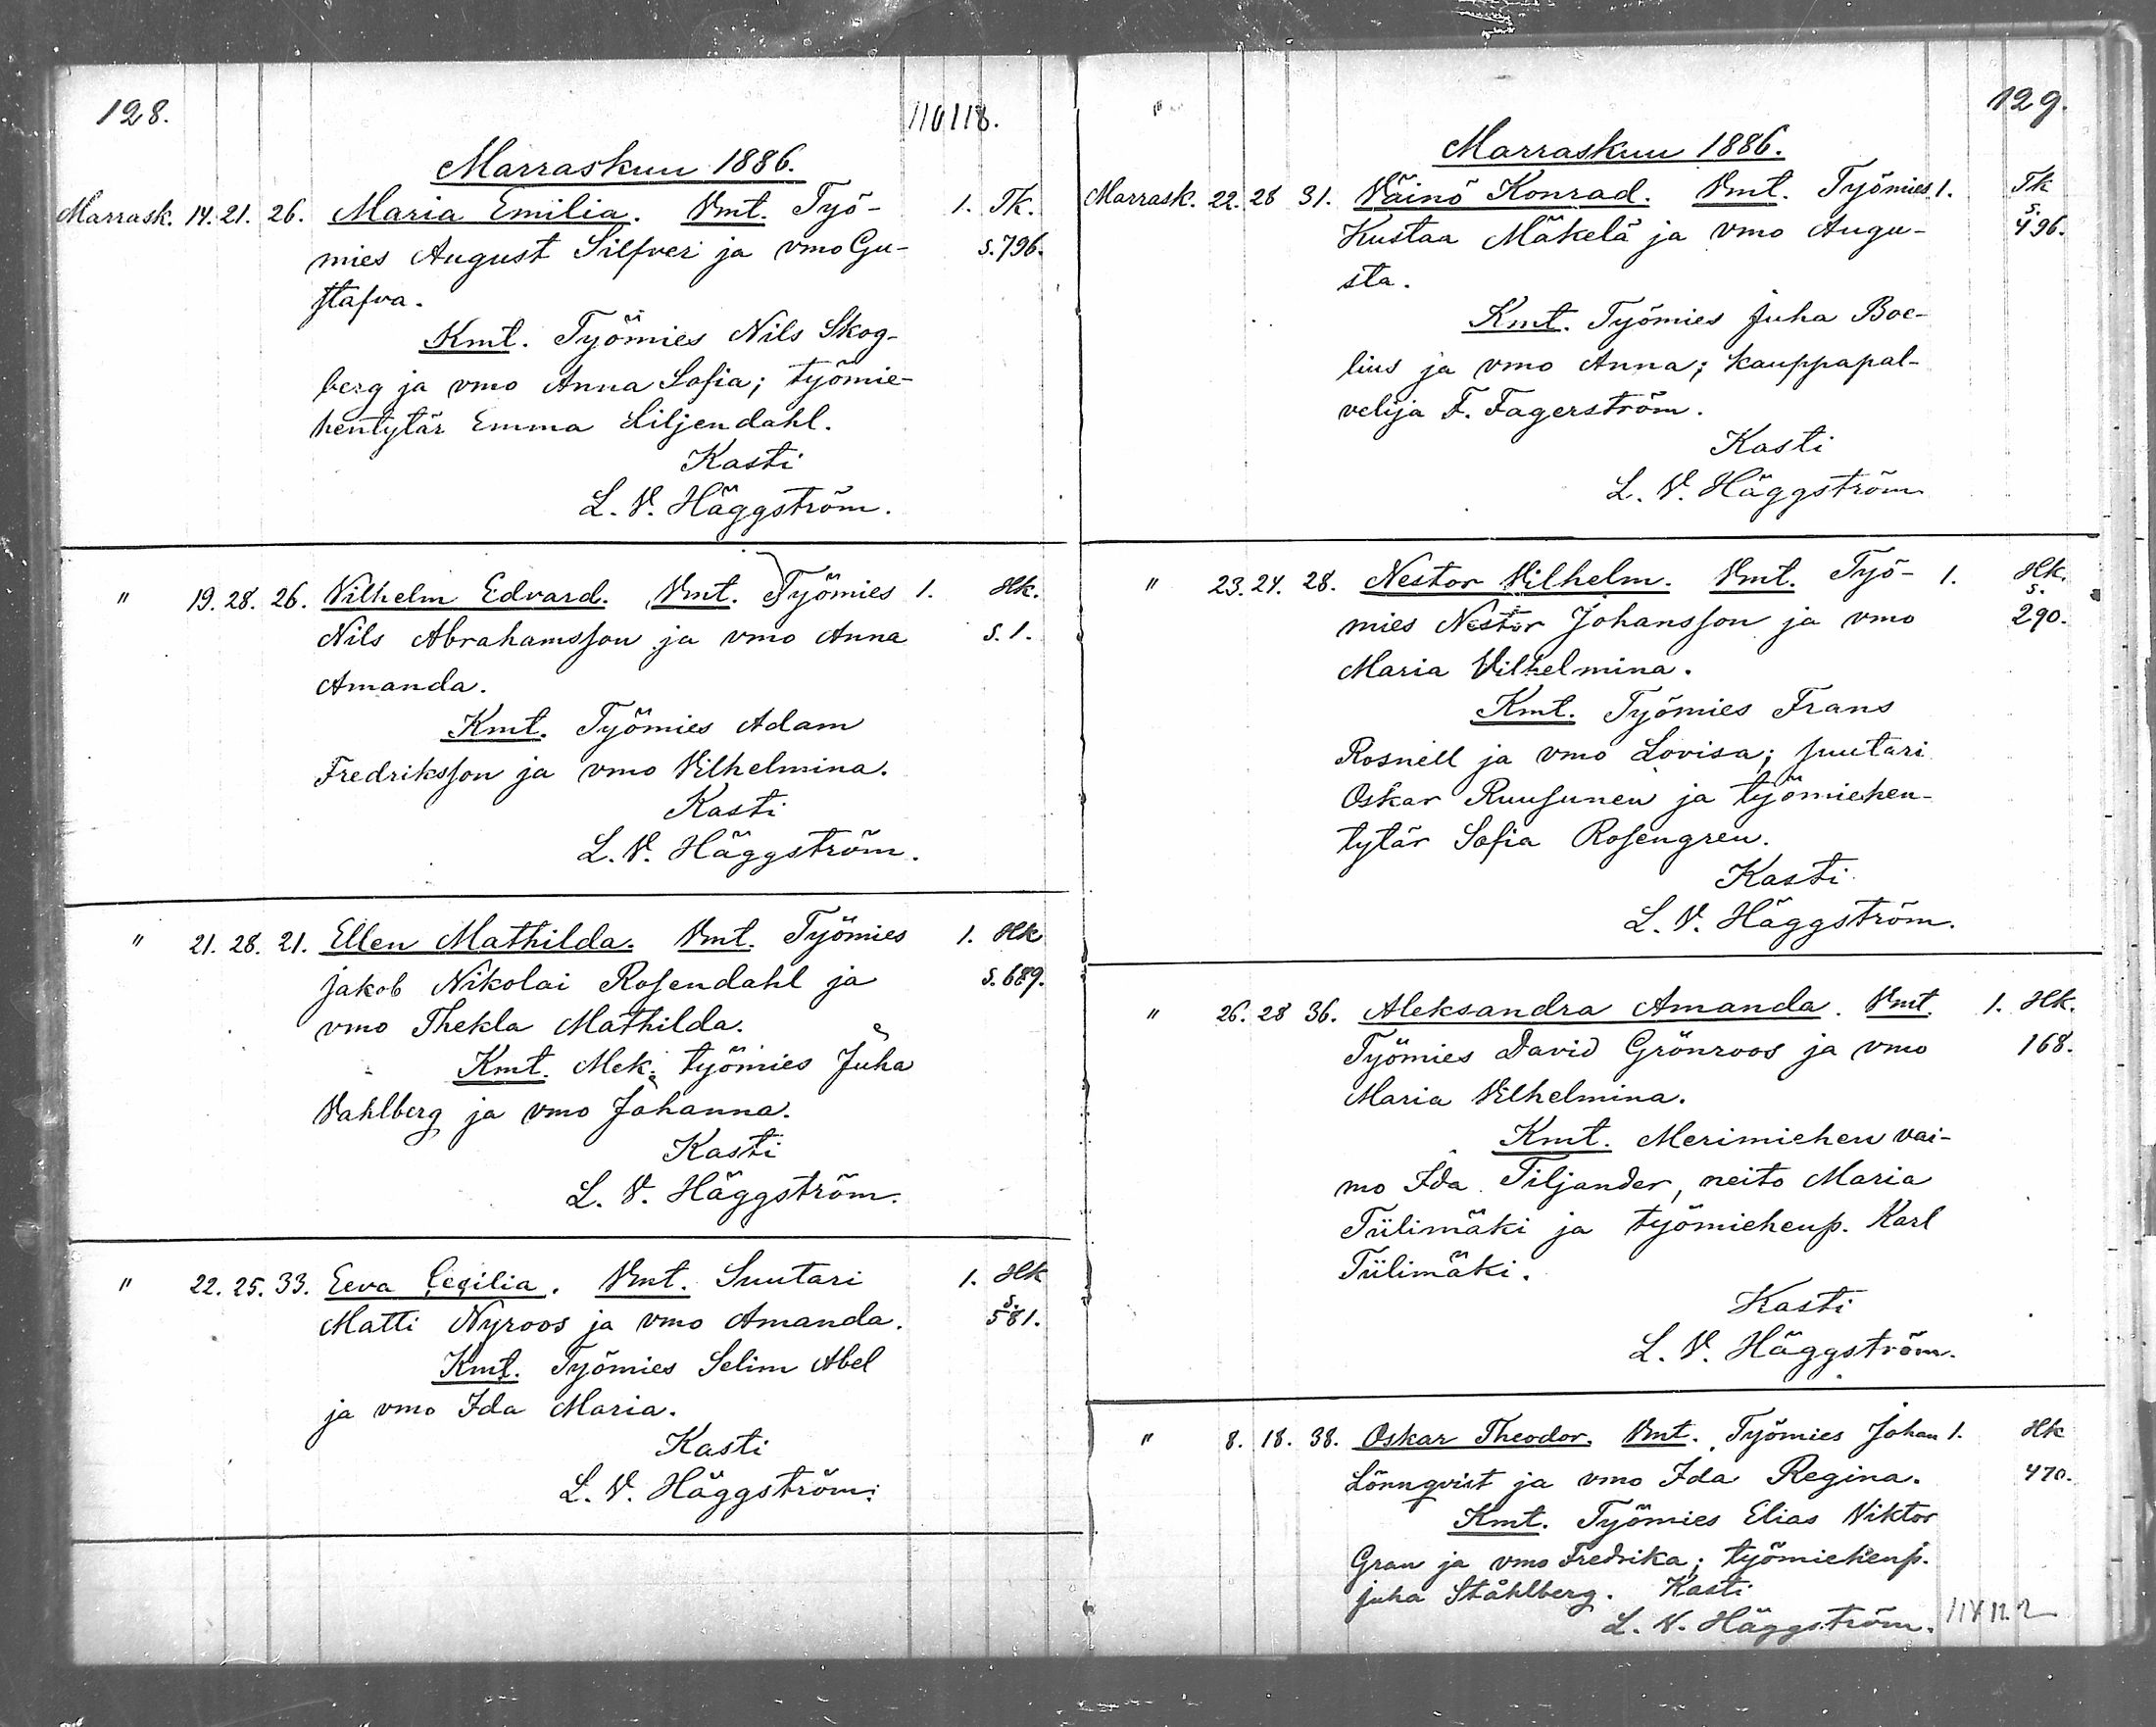 128. 110 118.
Marraskuu 1886.
Marrask. 14. 21. 26. Maria Emilia. Vmt. Työ- 1. Tk.
mies August Silfver ja vmo Gu- s. 796.
stafva.
Kmt. Työmies Nils Skog-
berg ja vmo Anna Sofia; työmie-
hentytär Emma Liljendahl.
Kasti
L. V. Häggström.
" 19. 28. 26. Vilhelm Edvard. Vmt. Työmies 1. Hk.
Nils Abrahamsson ja vmo Anna s. 1.
Amanda.
Kmt. Työmies Adam
Fredriksson ja vmo Vilhelmina.
Kasti
L. V. Häggström.
" 21. 28. 21. Ellen Mathilda. Vmt. Työmies 1. Hk
Jakob Nikolai Rosendahl ja s. 689.
vmo Thekla Mathilda.
Kmt. Mek. työmies Juha
Vahlberg ja vmo Johanna.
Kasti
L. V. Häggström.
" 22. 25. 33. Eeva Cecilia. Vmt. Suutari 1. Hk
Matti Nyroos ja vmo Amanda. s. 581.
Kmt. Työmies Selim Abel
ja vmo Ida Maria.
Kasti
L. V. Häggström.
129.
Marraskuu 1886.
Marrask. 22. 28 31. Väinö Konrad. Vmt. Työmies 1. Tk
Kustaa Mäkelä ja vmo Augu- s. 496.
sta.
Kmt. Työmies Juha Boe-
lius ja vmo Anna; kauppapal-
velija F. Fagerström.
Kasti
L. V. Häggström
" 23. 24. 28. Nestor Vilhelm. Vmt. Työ- 1. Hk.
mies Nestor Johansson ja vmo s. 290.
Maria Vilhelmina.
Kmt. Työmies Frans
Rosnell ja vmo Lovisa; suutari
Oskar Ruusunen ja työmiehen-
tytär Sofia Rosengren.
Kasti
L. V. Häggström.
" 26. 28 36. Aleksandra Amanda. Vmt. 1. Hk.
Työmies David Grönroos ja vmo 168.
Maria Vilhelmina.
Kmt. Merimiehen vai-
mo Ida Tiljander, neito Maria
Tiilimäki ja työmiehenp. Karl
Tiilimäki.
Kasti
L. V. Häggström.
" 8. 18. 38. Oskar Theodor. Vmt. Työmies Johan 1. Hk
Lönnqvist ja vmo Ida Regina. 470.
Kmt. Työmies Elias Viktor
Gran ja vmo Fredrika; työmiehenp.
Juha Ståhlberg. Kasti
L. V. Häggström.